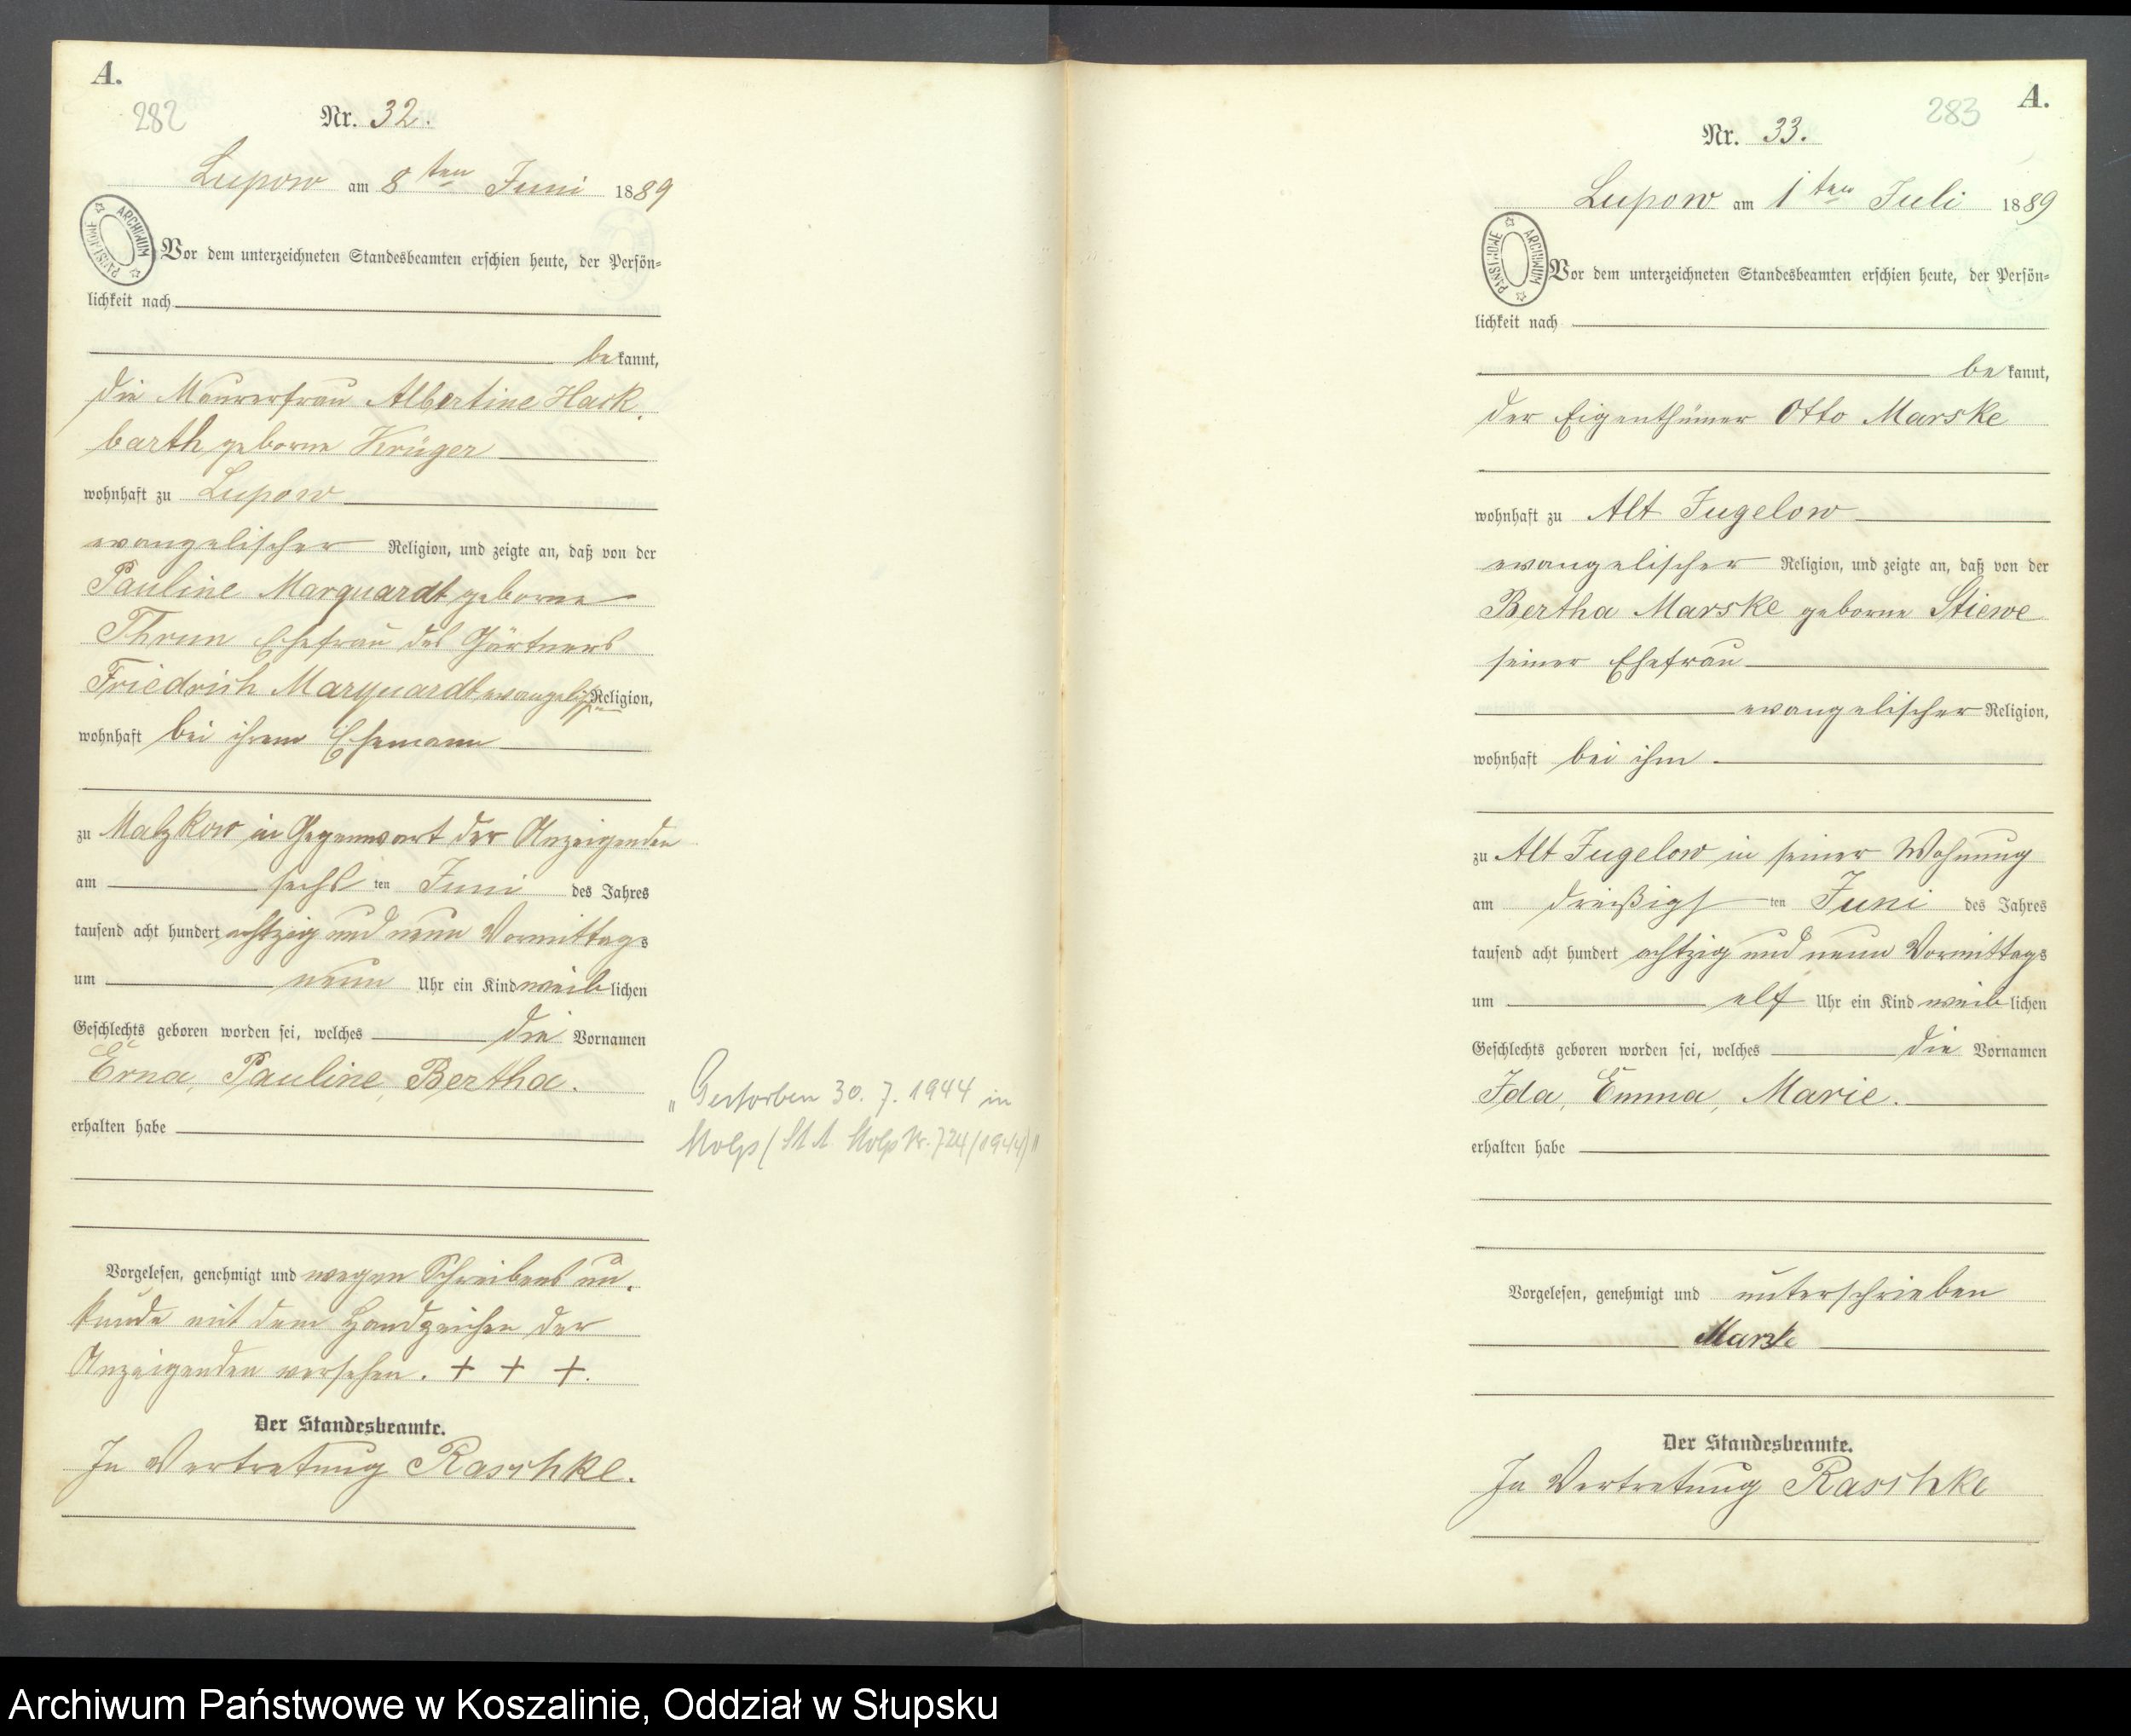 A.
282
Nr. 32.
Lupow am 8ten Juni 1889
Vor dem unterzeichneten Standesbeamten erschien heute, der Persön=
lichkeit nach
bekannt,
die Maurerfrau Albertine Hack.
barth geborne Krüger
wohnhaft zu Lupow
evangelischer Religion, und zeigte an, daß von der
Pauline Marquardt geborne
Thrun Ehefrau des Gärtners
Friedrich Marquardt evangelischer Religion,
wohnhaft bei ihrem Ehemann
zu Malzkow in Gegenwart der Anzeigenden
am sechsten Juni des Jahres
tausend acht hundert achtzig und neun Vormittags
um neun Uhr ein Kind weiblichen
Geschlechts geboren worden sei, welches die Vornamen
Erna, Pauline, Bertha.
erhalten habe
Vorgelesen, genehmigt und wegen Schreibens un.
kunde mit dem Handzeichen der
Anzeigenden versehen. + + +.
Der Standesbeamte.
In Vertretung Raschke.
"Gestorben 30. 7. 1944 in
Stolp (St. A. Stolp Nr. 724/1944)"
ARCHIWUM PAŃSTWOWE
A.
283
Nr. 33.
Lupow am 1ten Juli 1889
Vor dem unterzeichneten Standesbeamten erschien heute, der Persön=
lichkeit nach
bekannt,
der Eigenthümer Otto Marske
wohnhaft zu Alt Jugelow
evangelischer Religion, und zeigte an, daß von der
Bertha Marske geborne Stiewe
seiner Ehefrau
evangelischer Religion,
wohnhaft bei ihm
zu Alt Jugelow in seiner Wohnung
am dreißigsten Juni des Jahres
tausend acht hundert achtzig und neun Vormittags
um elf Uhr ein Kind weiblichen
Geschlechts geboren worden sei, welches die Vornamen
Ida, Emma, Marie.
erhalten habe
Vorgelesen, genehmigt und unterschrieben
Marske
Der Standesbeamte.
In Vertretung Raschke
ARCHIWUM PAŃSTWOWE
Archiwum Państwowe w Koszalinie, Oddział w Słupsku